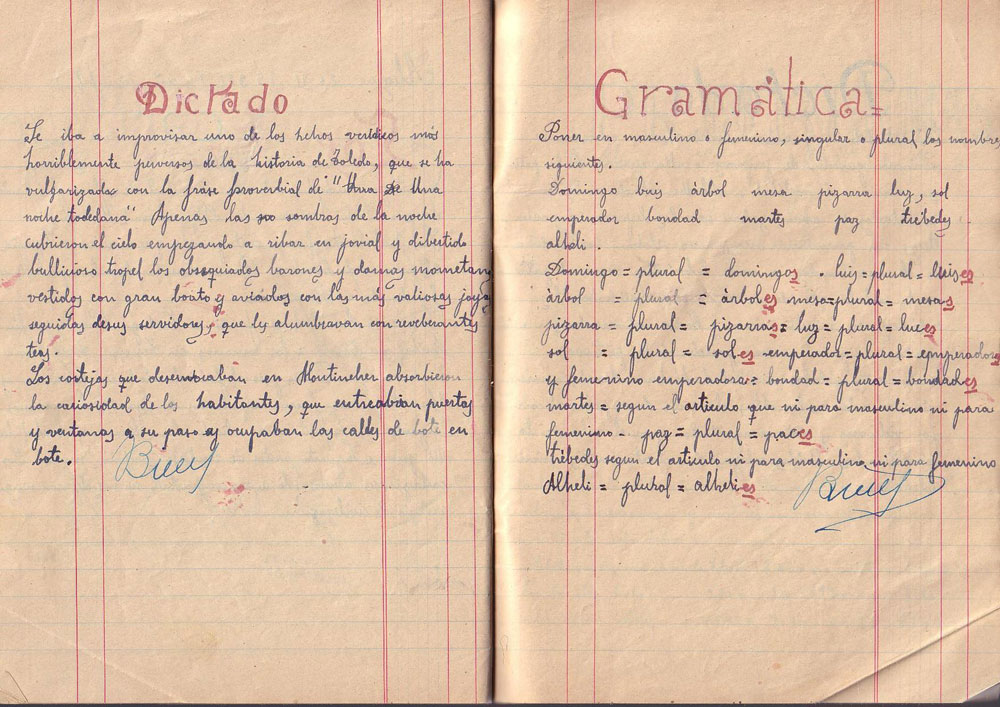 Dictado
Se iba a improvisar uno de los hehos verídicos mas
horriblemente perversos de la historia de Toledo, que se ha
vulgarizada con la fráse proverbial de "Una
noche todedana" Apenas las sombras de la noche
cubrieron el cielo empezando a ribar en jovial y dibertido
bullicioso tropel los obsequiados barones y damas mometan
vestidos con gran boato y aviados con las más valiosas joya
seguidos desus servidores, que les alumbravan con reveberantes
teas.
Los cortejas que desembocaban en Montincher absorbieron
la cariosidad de los habitantes, que entreabrian puertas
y ventanas a su paso y ocupaban las calles de bote en
bote.
Gramática=
Poner en masculino o femenino, singular o plural los nombres
siguientes.
Domingo luis àrbol mesa pizarra luz, sol
emperador bondad martes paz trébedes
alheli.
Domingo = plural = domingos . luis = plural = luises
àrbol = plural = árboles mesa=plural = mesas
pizarra = plural = pizarras = luz = plural = luces
sol = plural = soles emperador = plural = emperadores
y femenino emperadora = bondad = plural = bondades
martes = segun el articulo que ni para masculino ni para
femenimo - paz = plural = paces
trébedes segun el articulo ni para masculino ni para femenino
Alheli = plural = alhelies